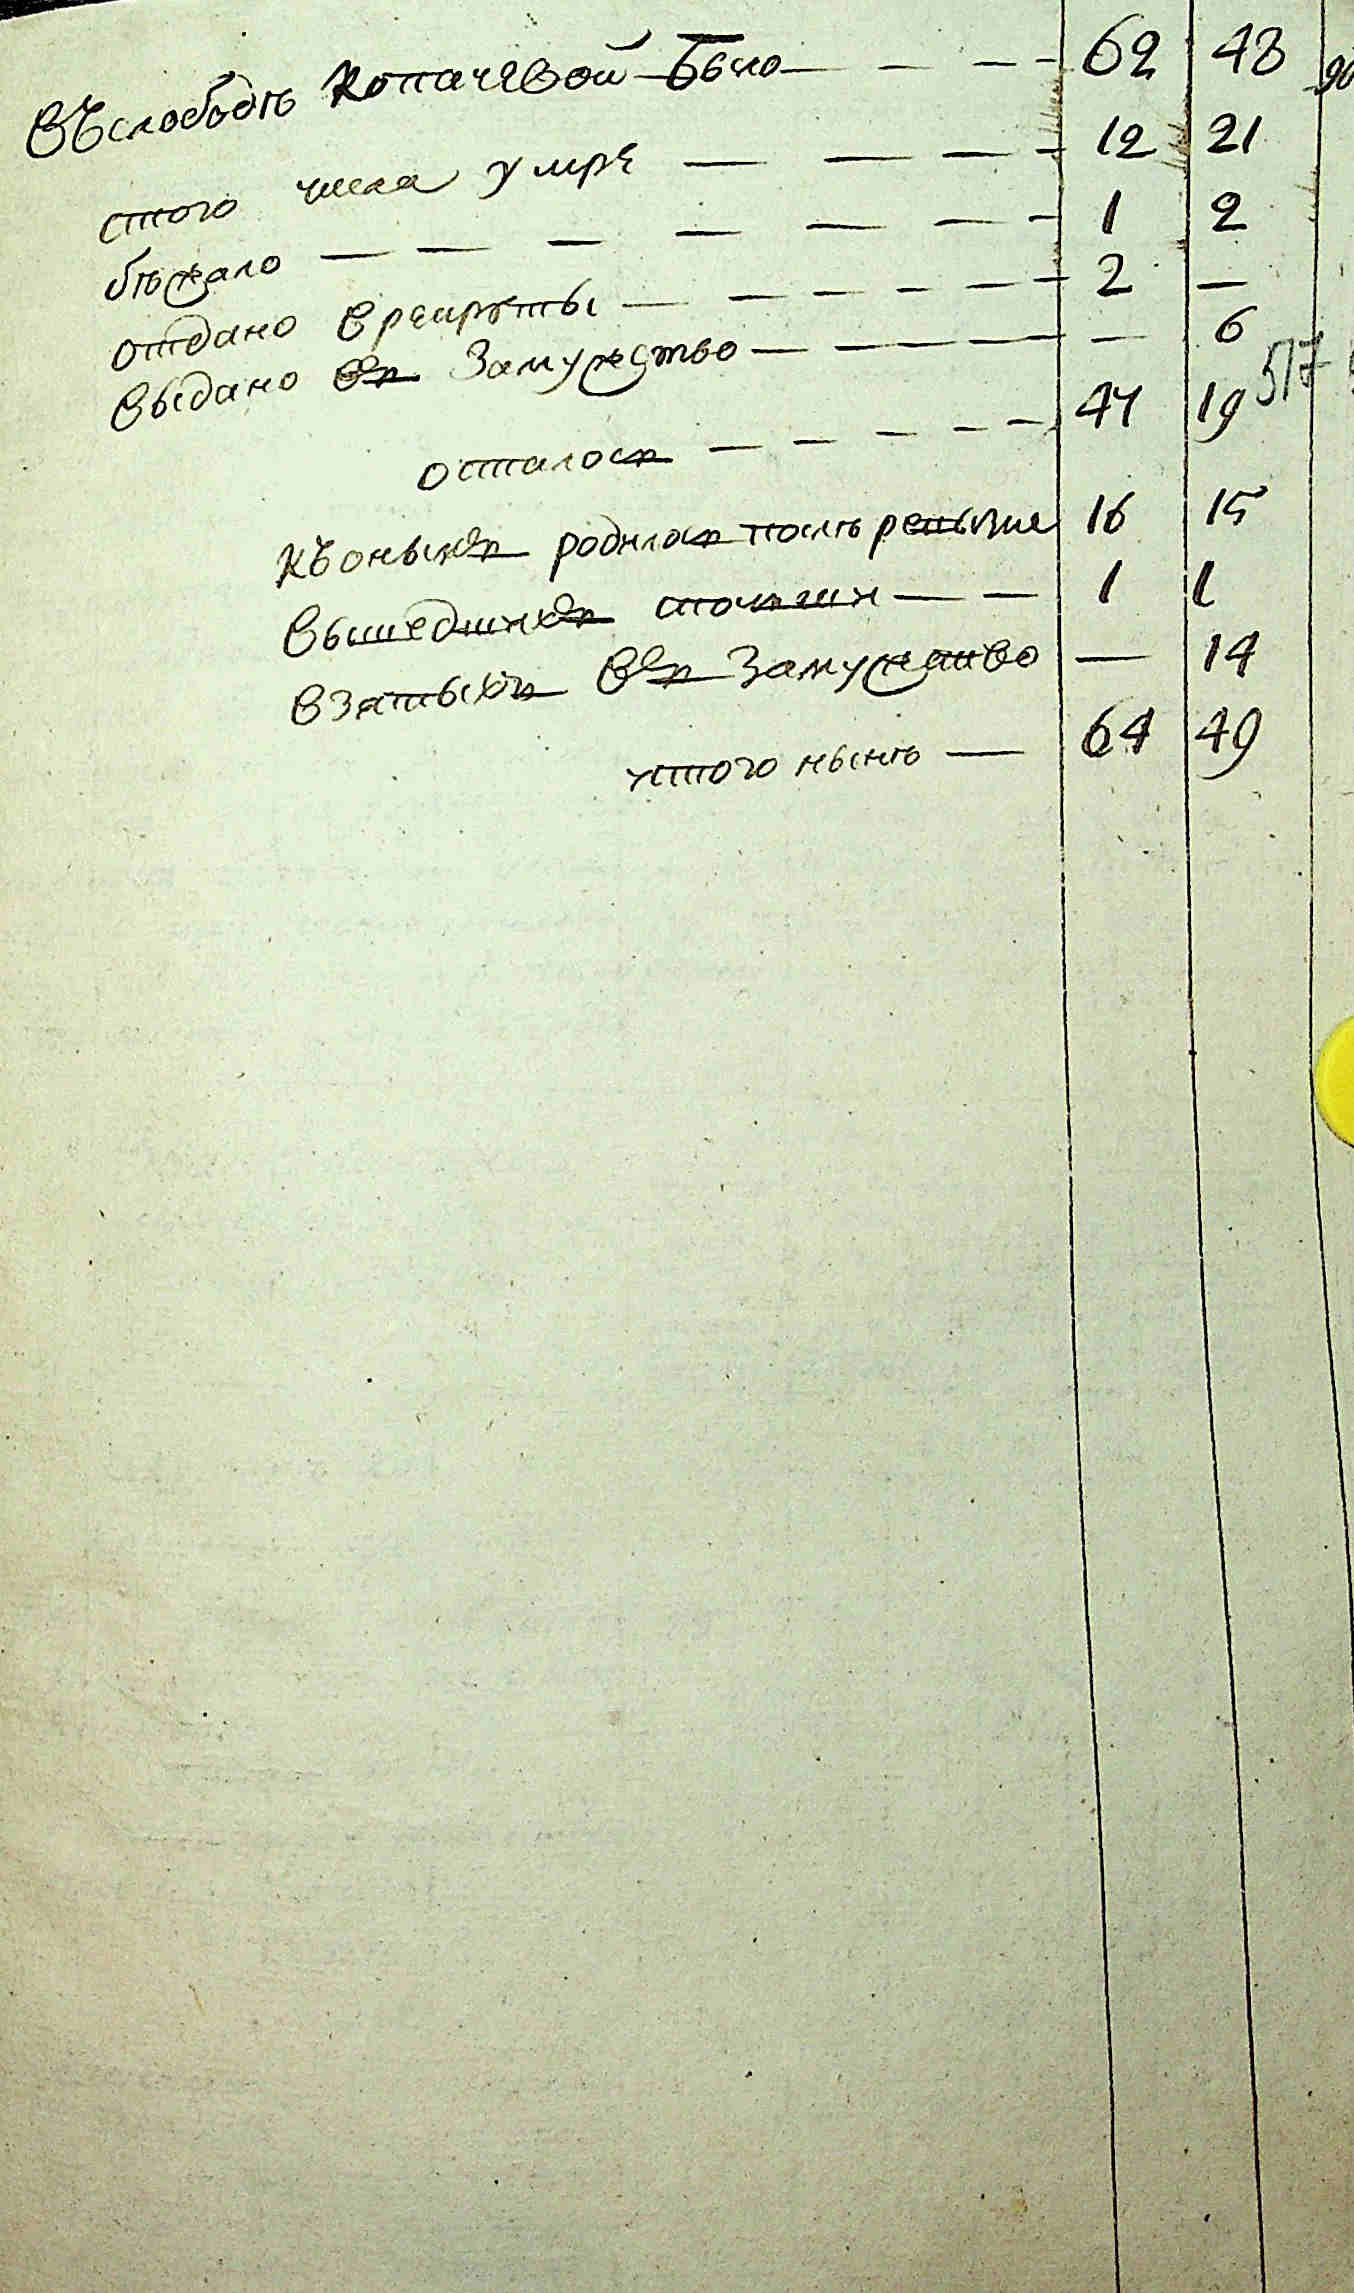 Въ слободѣ Копачевой было — — — 62 48
с того числа умре — — — — 12 21
бѣжало — — — — — — — 1 2
отдано в рекруты — — — — — 2 —
выдано въ замужство — — — — — — 6
517
осталось — — — — — 47 19
къ онымъ родилось послѣ ревизие 16 15
вышедшихъ — — 1 1
взятыхъ въ замужство — 14
итого нынѣ — 64 49